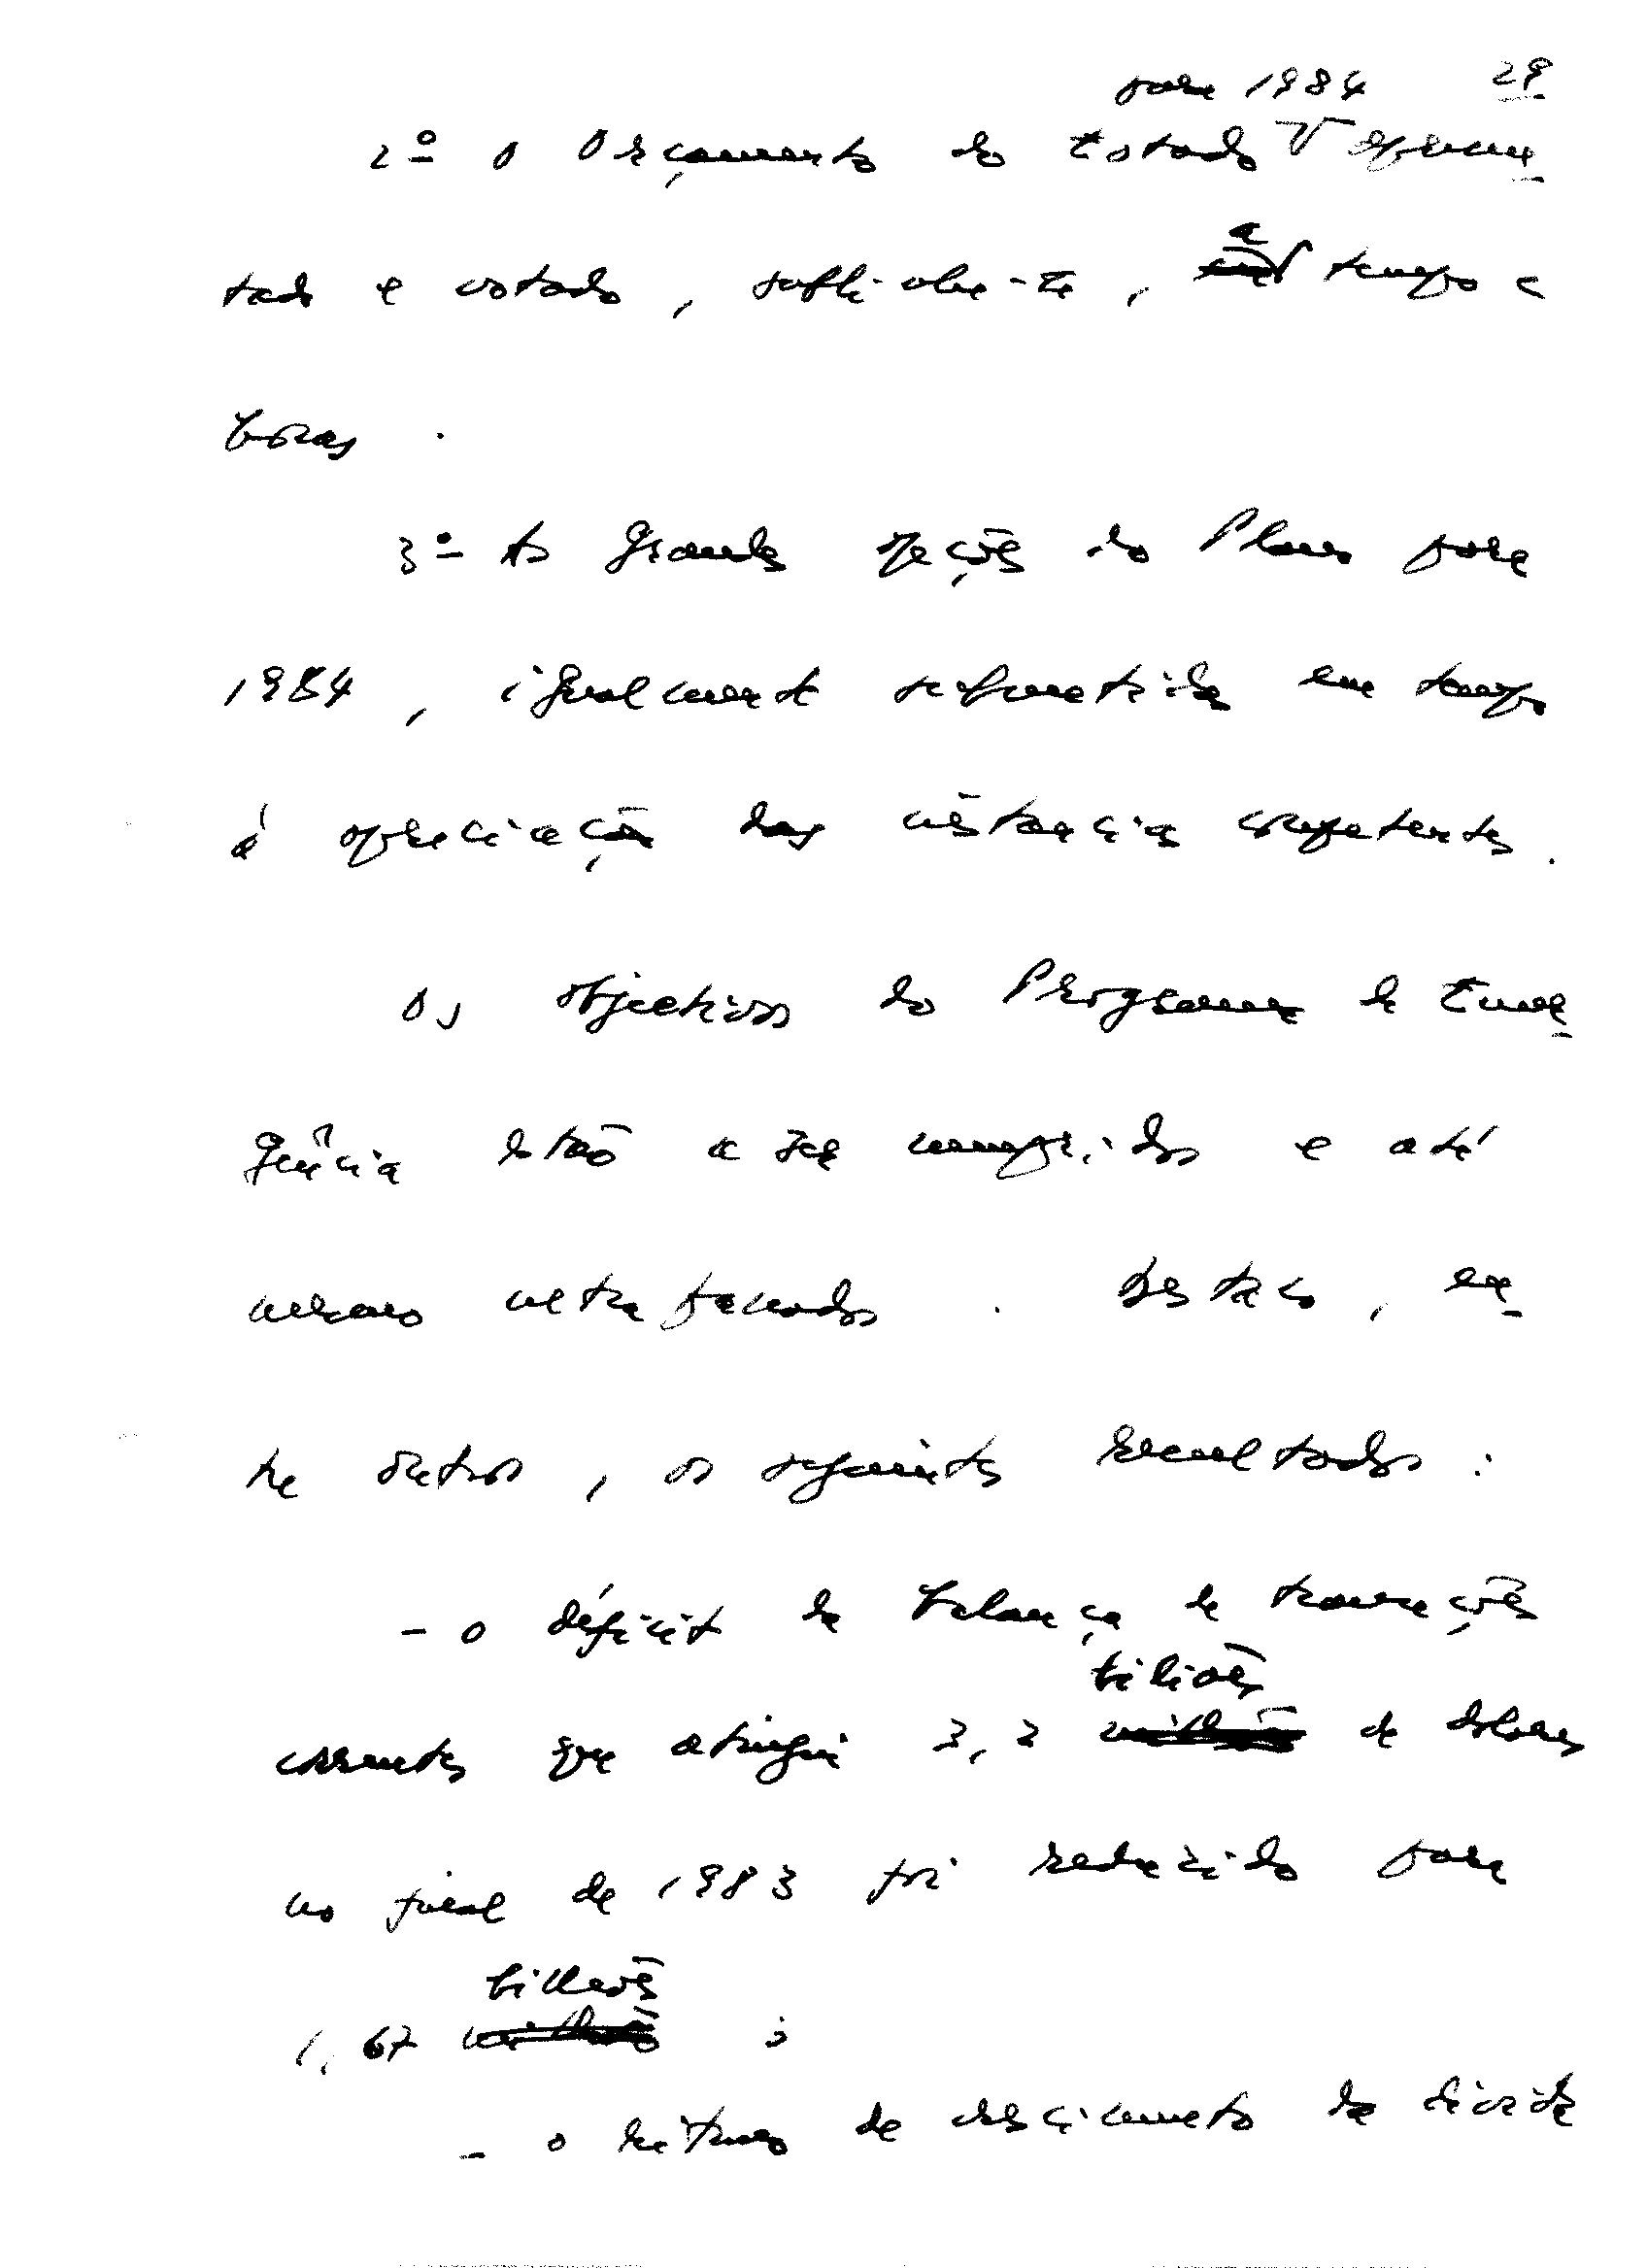 para 1984 29
2º o Orçamento do Estado apresen-
tado e votado, publicamente, a tempo e
horas.
3º As Grandes opções do Plano para
1984, igualmente submetidas em tempo
à apreciação das instâncias competentes.
Os objectivos do Programa de Emer-
gência estão a ser cumpridos e até
mesmo ultrapassados. Destaco, en-
tre outros, os seguintes resultados:
- o déficit da balança de transações
correntes que atingiu 3,2 biliões de dolares
no final de 1983 foi reduzido para
1,67 biliões;
- o ritmo de crescimento da dívida